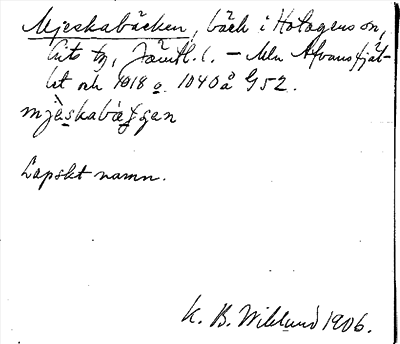 Mjeskabäcken, bäck i Hotagens sn,
Lits tg, Jämtl. l. – Mln Afvansfjäl-
let och 1018 o. 1040 å G52.
mjèskabäҫҫen
Lapskt namn.
K. B. Wiklund 1906.